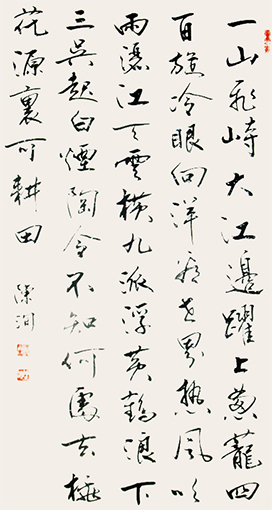 一山飛峙大江邊躍上葱蘢四
百旋冷眼向洋看世界熱風吹
雨灑江天雲橫九派浮黃鶴浪下
三吳起白煙陶令不知何處去桃
花源裏可耕田